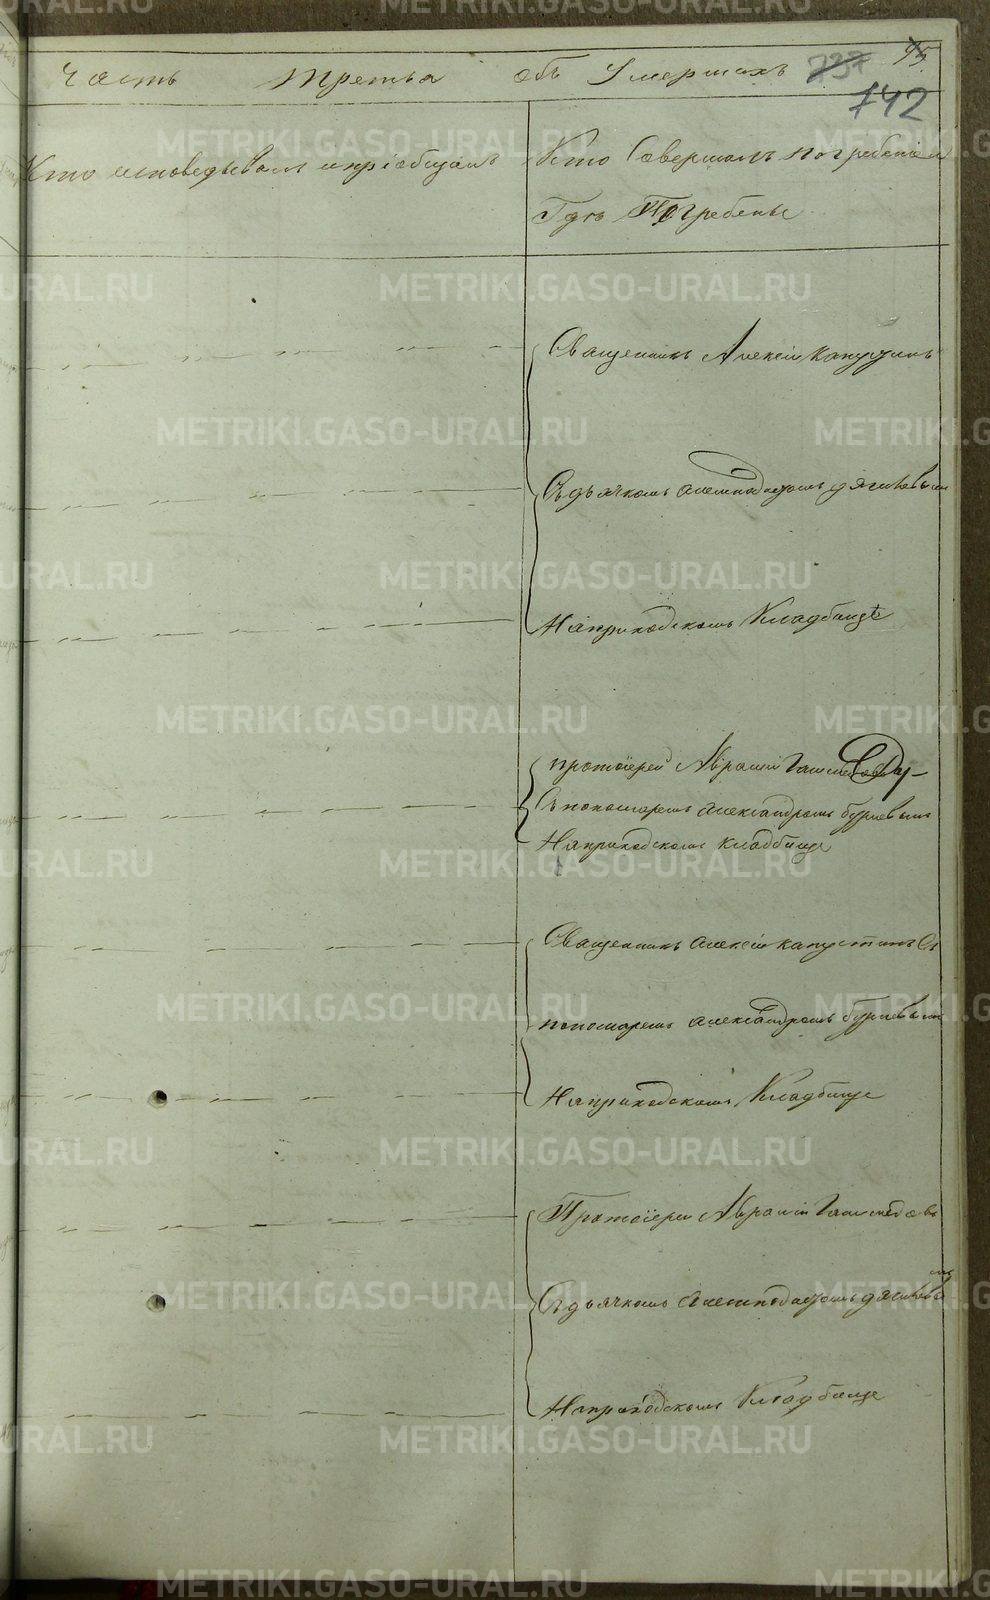 Часть Третья объ Умершихъ 737 95
742
Кто исповедывалъ и пріобщалъ
Кто Совершалъ погребеніе и
Где Погребены
Священникъ Алексій Капустинъ
Съ дьячкомъ
На приходскомъ Кладбищѣ
протоіерей Авраамій
Съ пономаремъ Александромъ Бурневымъ
На приходскомъ кладбище
Священникъ Алексій Капустинъ Съ
пономаремъ Александромъ Бурневымъ
На приходскомъ Кладбище
Протоіерей Авраамій
Съ дьячкомъ
На приходскомъ Кладбище
METRIKI.GASO-URAL.RU